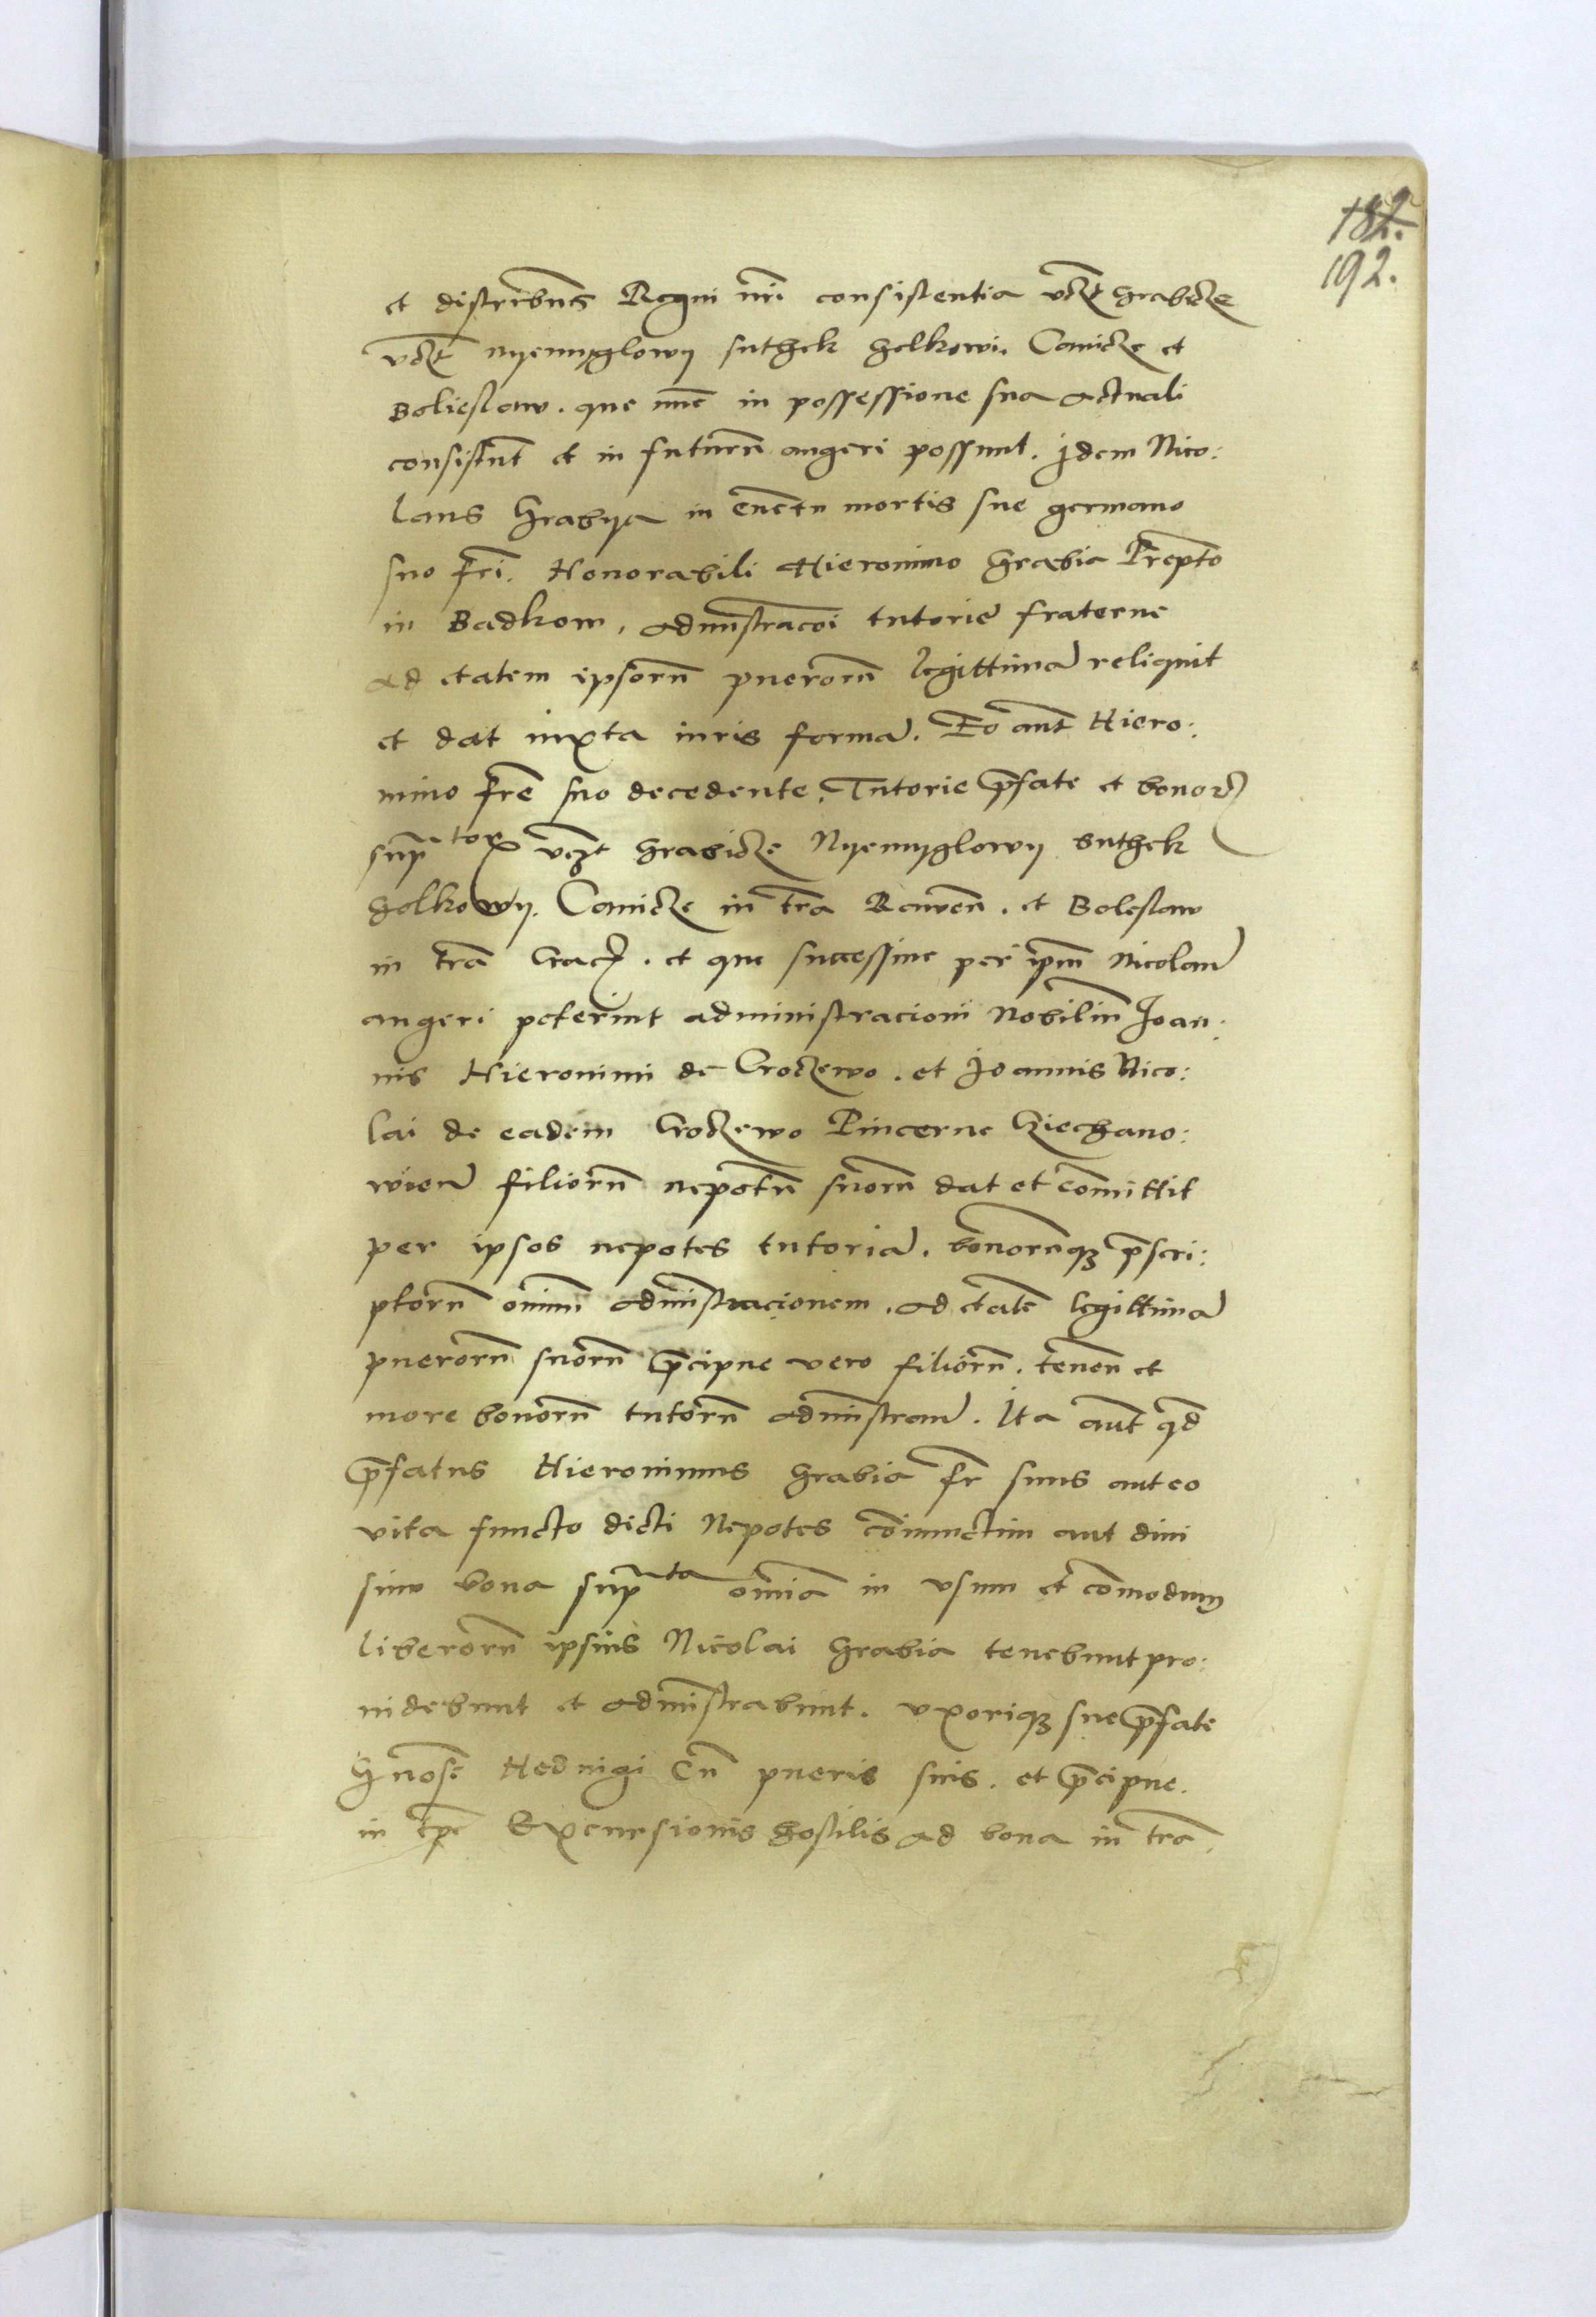 182.
192.
et districtibus Regni nri consistentia vdzt Grabicze
vdzt Nyemyglowy Suthek Golkowi. Canicze et
Bolieslaw. que nunc in possessione sua actuali
consistunt et in futurum augeri possunt. Idem Nico:
laus Grabya in euentu mortis sue germano
suo fri. Honorabili Hieronimo Grabia Prepto
in Badkow, administracoi tutorie fraterne
ad etatem ipsorum puerorum legittimam reliquit
et dat iuxta iuris formam. Eo aut Hiero:
nimo fre suo decedente. Tutorie prefate et bonorum
suptorum vczt Grabicze Nyemyglowy Suthek
Golkowy. Canicze in tra Rawen. et Boleslaw
in tra Crac. et que successiue per ipm Nicolaum
augeri poterint administracioni Nobilium Ioan:
nis Hieronimi de Croczewo. et Ioannis Nico:
lai de eadem Croczewo Pincerne Cziechano:
wien filiorum nepotum suorum dat et committit
per ipsos nepotes tutoriam. bonorumque prescri:
ptorum omnium administracionem. ad etate legittimam
puerorum suorum precipue vero filiorum. tenen et
more bonorum tutorum administran. Ita aut qd
prefatus Hieronimus Grabia fr suus aut eo
vita functo dicti Nepotes coniunctim aut diui
sim bona supta omnia in vsum et commodum
liberorum ipsius Nicolai Grabia tenebunt pro:
uidebunt et administrabunt. vxorique sue prefate
Gnose Heduigi cum pueris suis. et precipue.
in tpe Excursionis hostilis ad bona in tra